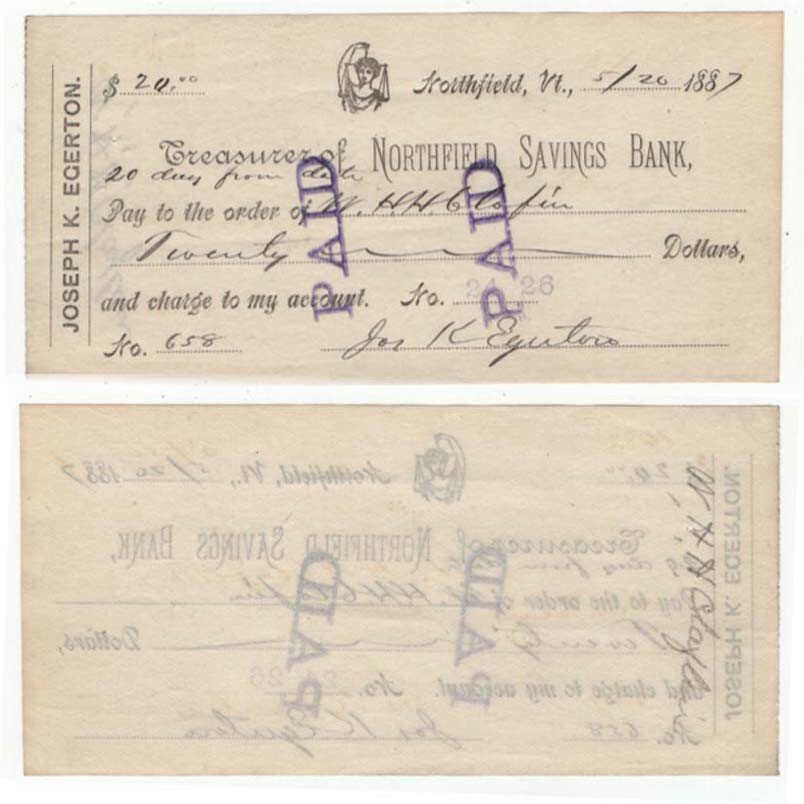 JOSEPH K. EGERTON.
$ 20.00
Northfield, Vt., 5/20 1887
Treasurer of NORTHFIELD SAVINGS BANK,
20 day from date
Pay to the order of W. H. H. Claflin
Twenty Dollars,
and charge to my account. No. 26
No. 658 Jos K Egerton
PAID
PAID
W. H. H. Claflin